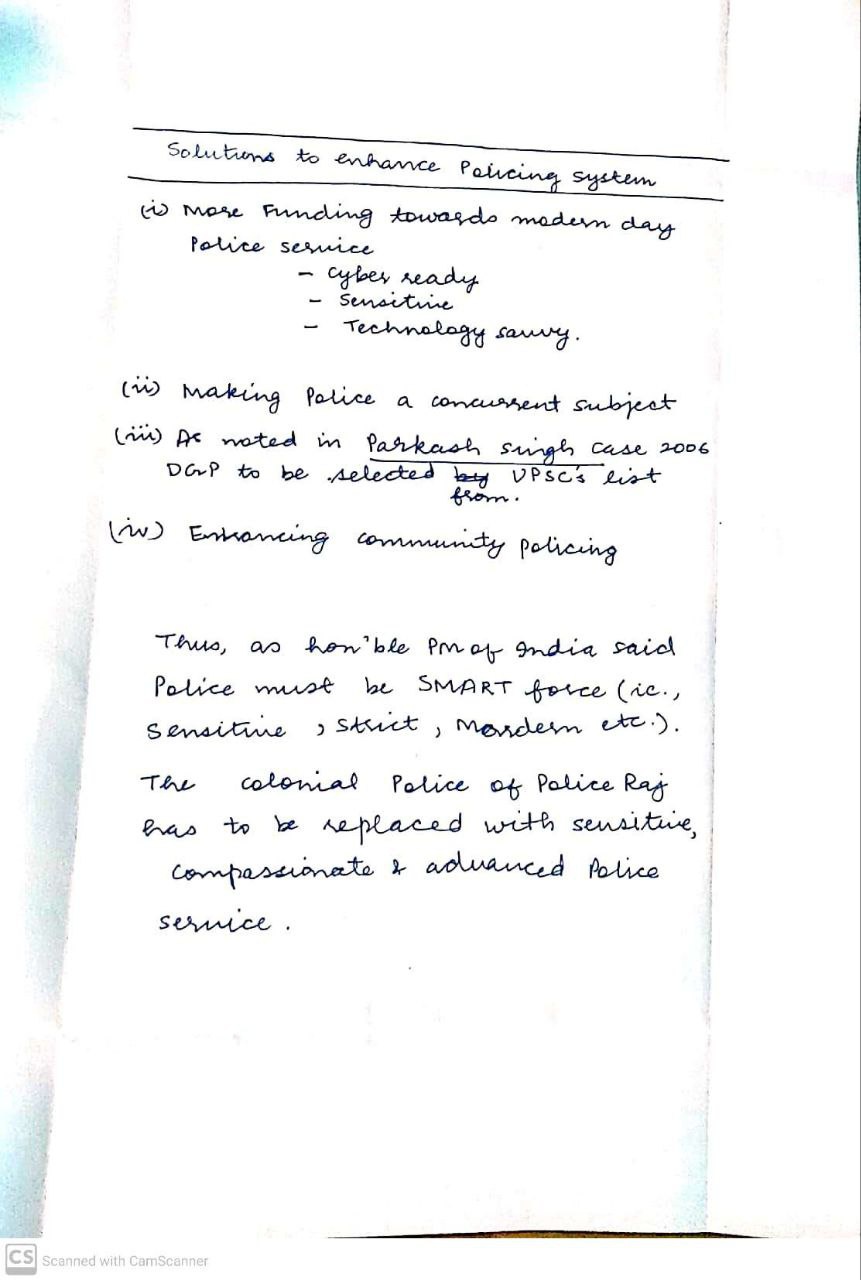 Solutions to enhance Policing system
(i) More Funding towards modern day
Police service
- cyber ready
- Sensitive
- Technology savvy.
(ii) Making Police a concurrent subject
(iii) As noted in Parkash singh case 2006
DGP to be selected by UPSC's list
from.
(iv) Enhancing community policing
Thus, as hon'ble PM of India said
Police must be SMART force (ie.,
Sensitive, Strict, Mordern etc.).
The colonial Police of Police Raj
has to be replaced with sensitive,
compassionate & advanced Police
service.
CS Scanned with CamScanner